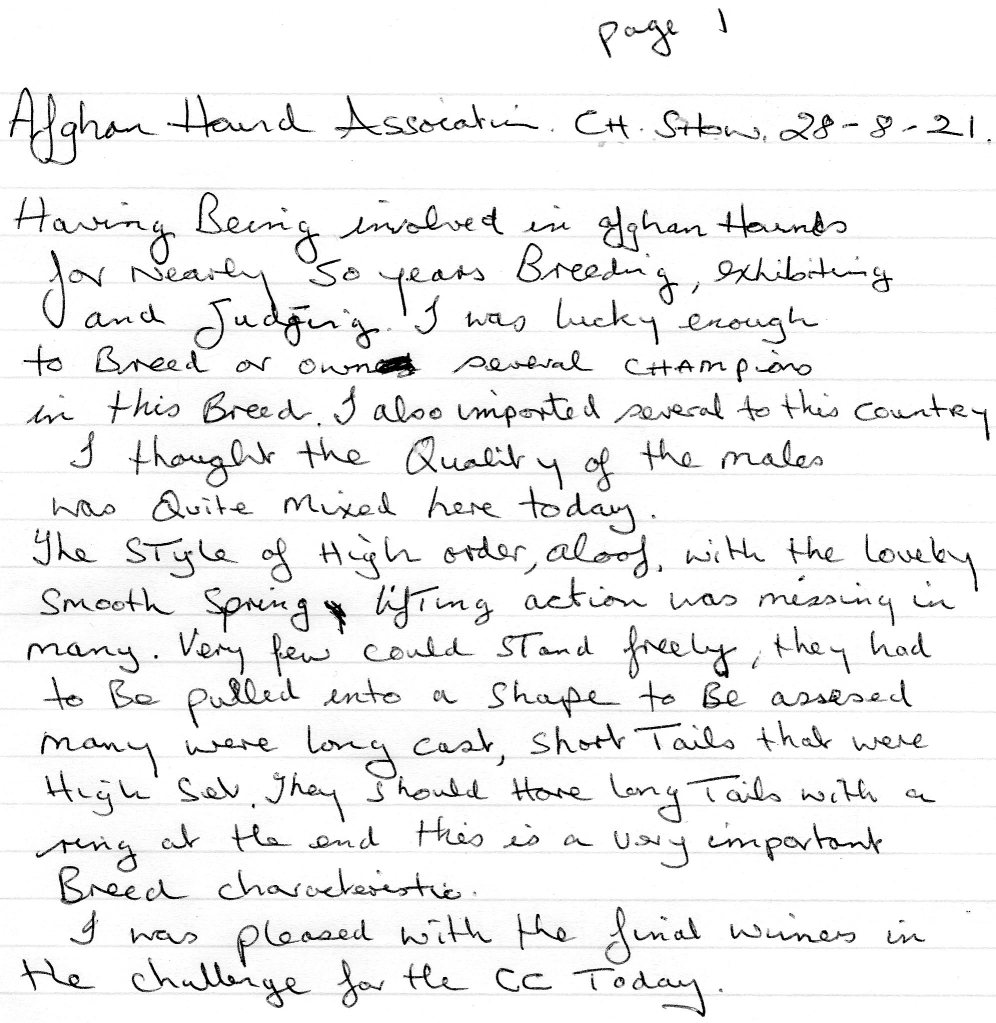 page 1
Afghan Hound Association. CH. SHow. 28-8-21.
Having Being involved in afghan Hounds
for Nearly 50 years Breeding, exhibiting
and Judging. I was lucky enough
to Breed or own several CHAMpions
in this Breed. I also imported several to this country
I thought the Quality of the males
was Quite Mixed here today.
The STyle of High order, aloof, with the lovely
Smooth Spring, lifTing action was missing in
many. Very few could STand freely, they had
to Be pulled into a Shape to Be assesed
many were long cast, Short Tails that were
High Set. They should Have long Tails with a
ring at the end this is a very important
Breed characteristic.
I was pleased with the final winners in
the challenge for the CC Today.